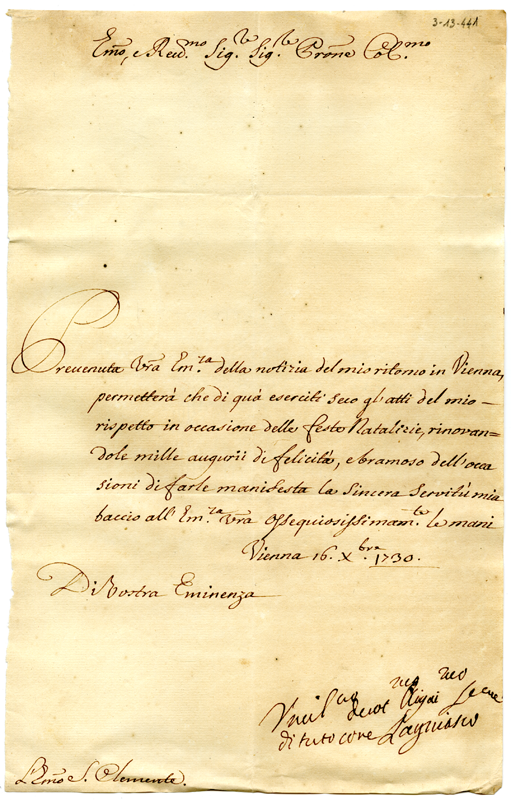 3-13-441
Emo, e Reud.mo Sig.re Sig.re Prone Col.mo
Prevenuta Vra Em.za della notizia del mio ritorno in Vienna,
permetterà che di quà eserciti seco gl'atti del mio
rispetto in occasione delle feste Natalizie, rinovan-
dole mille augurii di felicità, e bramoso dell'occa
sioni di farle manifesta la sincera servitù mia
baccio all'Em.za Vra ossequiosissimam.te le mani
Vienna 16. Xbre 1730.
Di Vostra Eminenza
di tuto core Lagniasco
L'Emo S. Clemente.